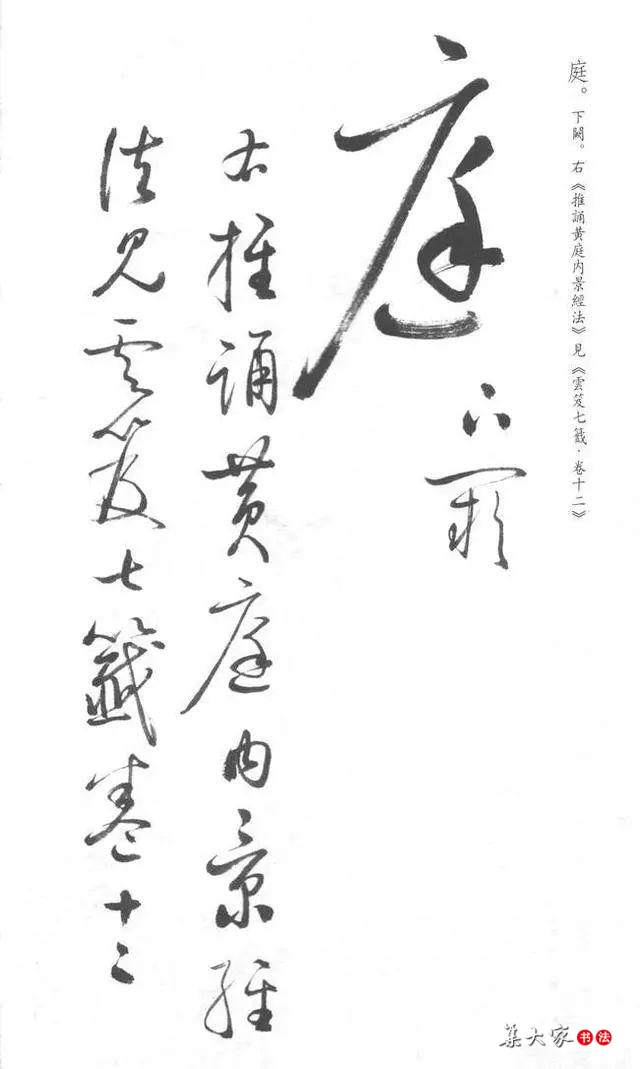 庭。下闕。右《推誦黄庭内景經法》見《雲笈七籤·卷十二》
庭
下闕
右推誦黄庭内景經
法見雲笈七籤卷十二
集大家书法